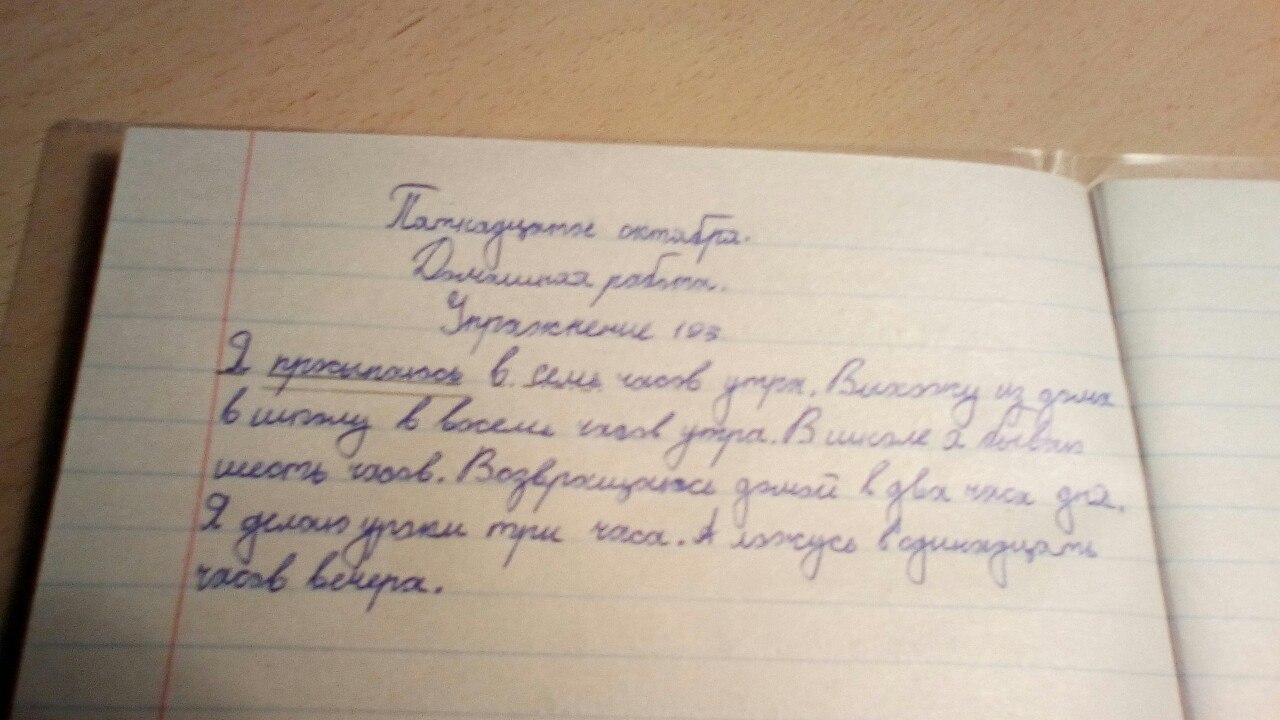 Пятнадцатое октября.
Домашняя работа.
Упражнение 103
Я просыпаюсь в семь часов утра. Выхожу из дома
в школу в восемь часов утра. В школе я бываю
шесть часов. Возвращаюсь домой в два часа дня.
Я делаю уроки три часа. А ложусь в одинадцать
часов вечера.